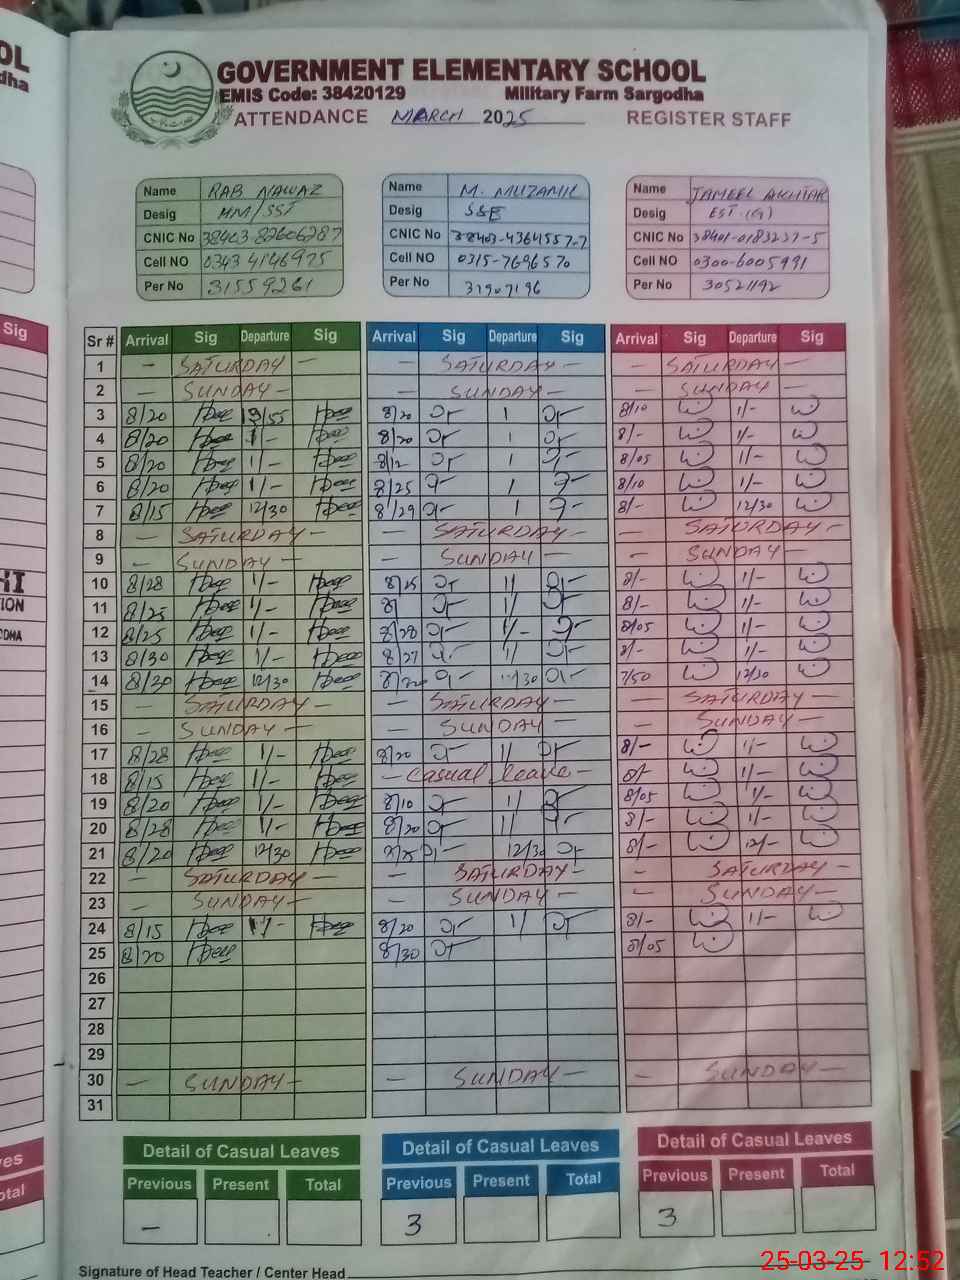 OL
dha
Sig
HI
ION
ODHA
es
otal
GOVERNMENT ELEMENTARY SCHOOL
EMIS Code: 38420129 Military Farm Sargodha
ATTENDANCE MARCH 2025 REGISTER STAFF
Name RAB NAWAZ
Desig HM/SST
CNIC No
Cell NO 0343 4146975
Per No 31559261
Name M. MUZAMIL
Desig SSE
CNIC No
Cell NO 0315-7696570
Per No 31907196
Name JAMEEL AKHTAR
Desig EST (G)
CNIC No 38401-0183237-5
Cell NO 0300-6005991
Per No 30521192
Sr # Arrival Sig Departure Sig Arrival Sig Departure Sig Arrival Sig Departure Sig
1 — SATURDAY — — SATURDAY — — SATURDAY —
2 — SUNDAY — — SUNDAY — — SUNDAY —
3 8/20 8/20 1 8/10 1/-
4 8/20 1/- 8/20 1 8/- 1/-
5 8/20 1/- 8/12 1 8/05 1/-
6 8/20 1/- 8/25 1 8/10 1/-
7 8/15 12/30 8/29 1 8/- 12/30
8 — SATURDAY — — SATURDAY — — SATURDAY —
9 — SUNDAY — — SUNDAY — — SUNDAY —
10 8/28 1/- 8/25 1/ 8/- 1/-
11 8/25 1/- 8/ 1/ 8/- 1/-
12 8/25 1/- 8/28 1/- 8/05 1/-
13 8/30 1/- 8/27 1/ 8/- 1/-
14 8/20 12/30 8/20 12/30 7/50 12/30
15 — SATURDAY — — SATURDAY — — SATURDAY —
16 — SUNDAY — — SUNDAY — — SUNDAY —
17 8/28 1/- 8/20 1/ 8/- 1/-
18 8/15 1/- — Casual leave — 8/- 1/-
19 8/20 1/- 8/10 1/ 8/05 1/-
20 8/28 1/- 8/20 1/ 8/- 1/-
21 8/20 12/30 8/25 12/30 8/- 12/-
22 — SATURDAY — — SATURDAY — — SATURDAY —
23 — SUNDAY — — SUNDAY — — SUNDAY —
24 8/15 1/- 8/20 1/ 8/- 1/-
25 8/20 8/30 8/05
26
27
28
29
30 — SUNDAY — — SUNDAY — — SUNDAY —
31
Detail of Casual Leaves Detail of Casual Leaves Detail of Casual Leaves
Previous Present Total Previous Present Total Previous Present Total
— 3 3
Signature of Head Teacher / Center Head
25-03-25 12:52